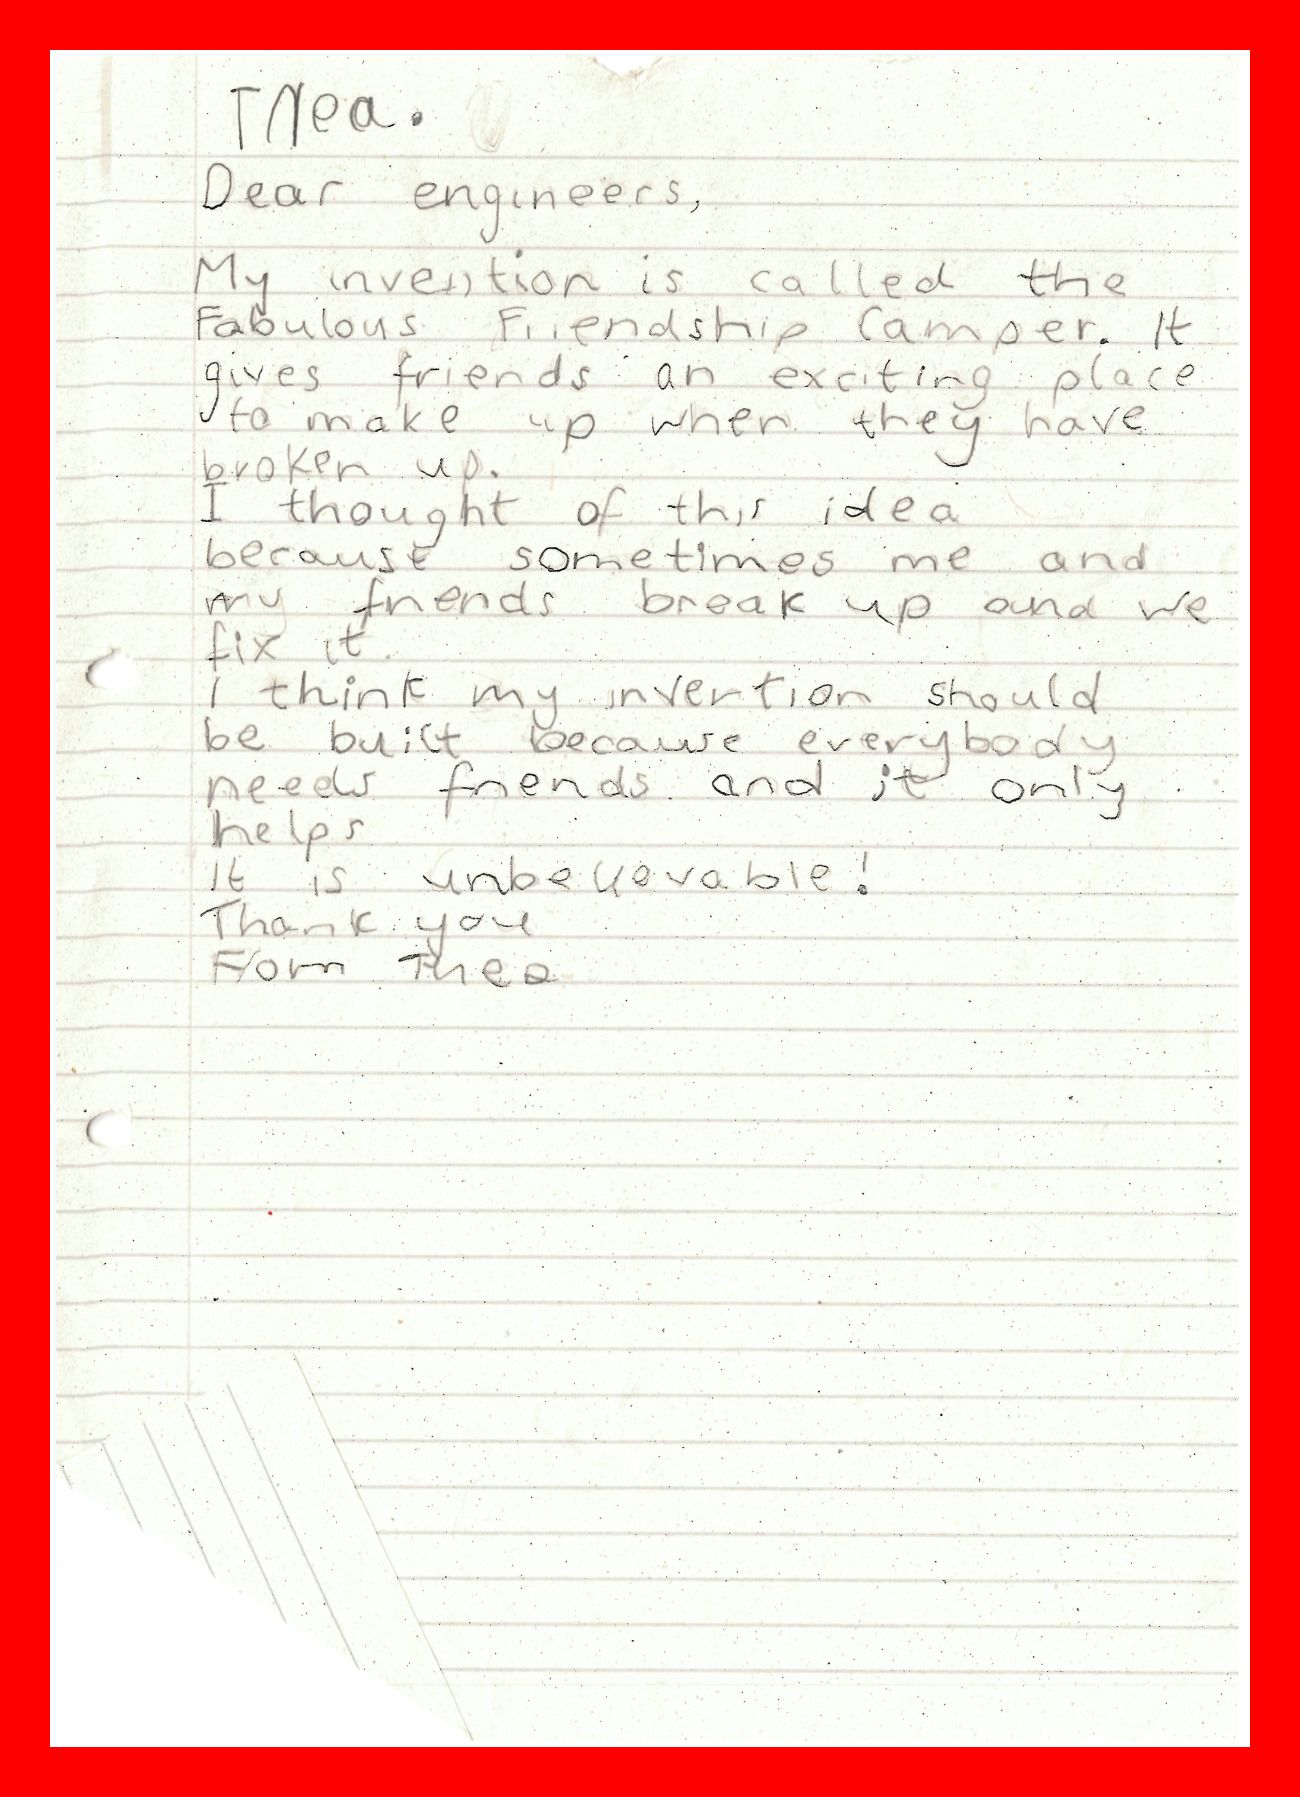 Thea.
Dear engineers,
My invention is called the
Fabulous Friendship Camper. It
gives friends an exciting place
to make up when they have
broken up.
I thought of this idea
because sometimes me and
my friends break up and we
fix it.
I think my invention should
be built because everybody
needs friends and it only
helps
It is unbelievable!
Thank you
From Thea